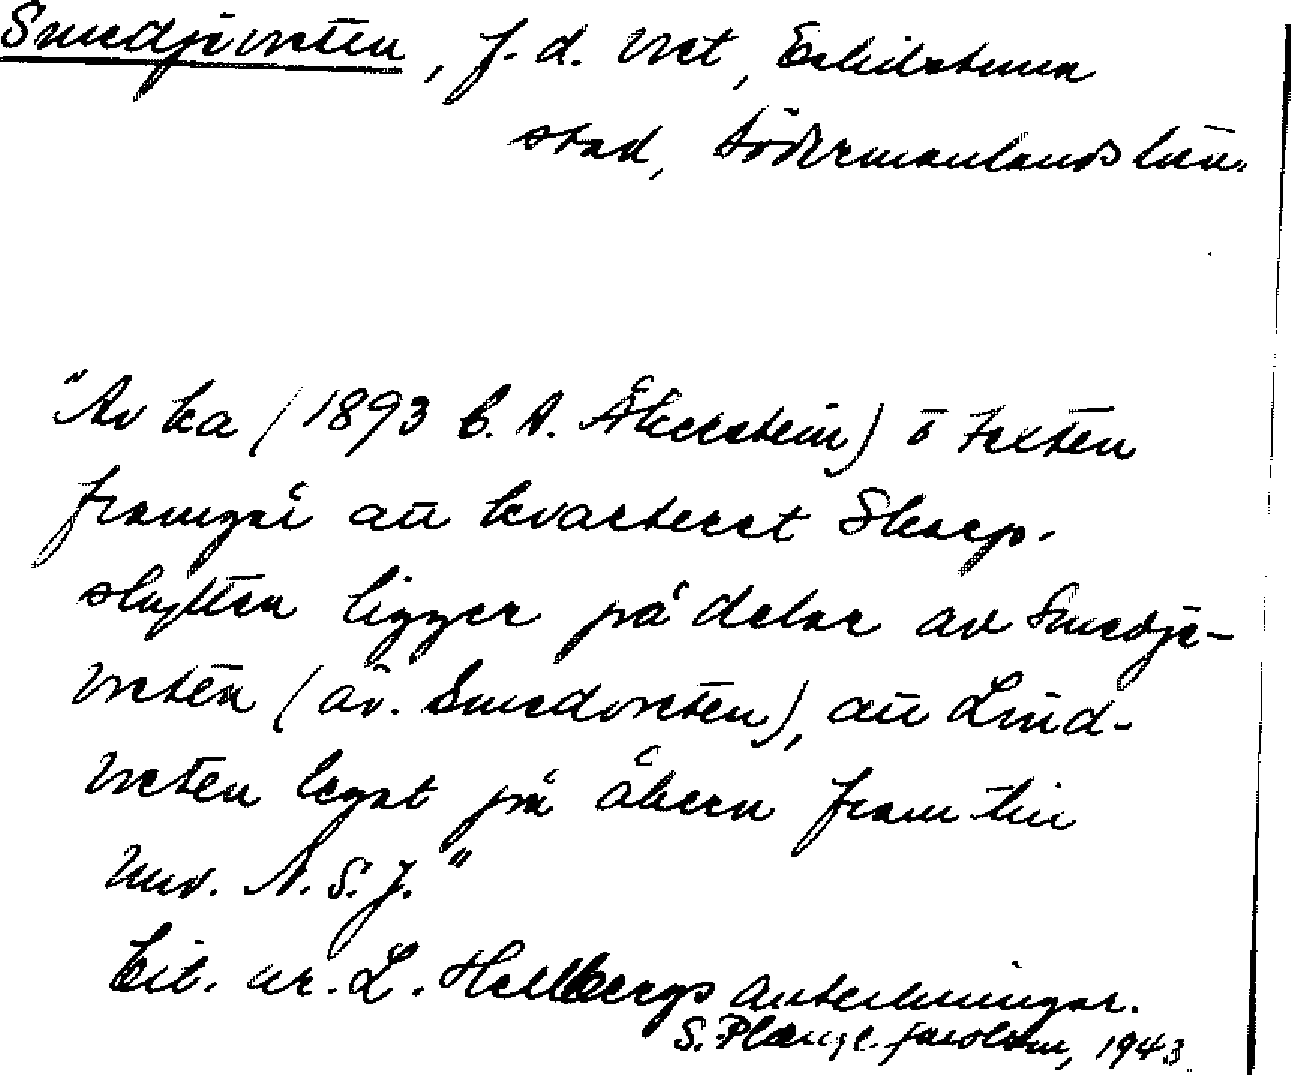 Smedjevreten, f.d. vret, Eskilstuna
stad, Södermanlands län.
"Av ka (1893 C. A. Åkerstein) o texten
framgår att kvarteret Skarp-
skytten ligger på delar av Smedje-
vreten (äv. Smedvreten), att Lind-
vreten legat på åkern fram till
nuv. N. S. J."
Cit. ur. L. Hellbergs anteckningar.
S. 1943